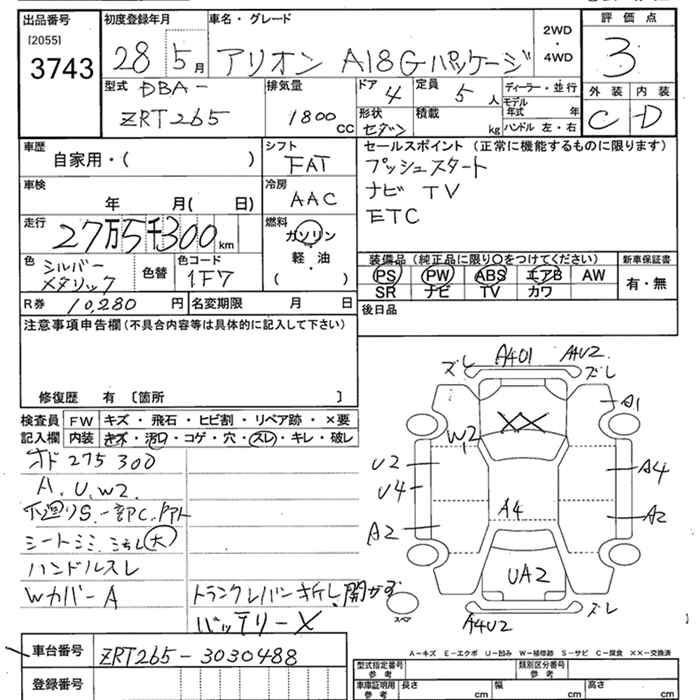 出品番号
[2055]
3743
初度登録年月
28 5月
車名・グレード
アリオン A18 Gパッケージ
2WD
・
4WD
評価点
3
型式
DBA-
ZRT265
排気量
1800 CC
ドア
4
定員
5人
形状
セダン
積載
kg
ディーラー・並行
モデル年式 年
ハンドル 左・右
外装 内装
C D
車歴
自家用・( )
シフト
FAT
車検
年 月( 日)
冷房
AAC
走行
27万5千300km
燃料
ガソリン
軽・油
( )
色
シルバーメタリック
色替
色コード
1F7
R券 10,280円
名変期限 月 日
セールスポイント (正常に機能するものに限ります)
プッシュスタート
ナビ TV
ETC
装備品(純正品に限り○をつけてください)
PS PW ABS エアB AW
SR ナビ TV カワ
新車保証書
有・無
後日品
注意事項申告欄(不具合内容等は具体的に記入して下さい)
修復歴 有 〔箇所 〕
検査員記入欄
FW キズ・飛石・ヒビ割・リペア跡・×要
内装 キズ・汚れ・コゲ・穴・スレ・キレ・破レ
オド 275300
A. U. W2
下廻りS.
シートシミ 大
ハンドルスレ
WカバーA
トランクレバー折レ、開かず
バッテリーX
ズレ A401 A4U2 ズレ
A1
XX
W2
U2
U4
A4
A4
A2
A2
UA2
A4U2
ズレ
スペア
A-キズ E-エクボ U-凹み W-補修跡 S-サビ C-腐食 XX-交換済
車台番号
ZRT265-3030488
登録番号
型式指定番号 参考
類別区分番号 参考
車庫証明用 参考
長さ cm
幅 cm
高さ cm